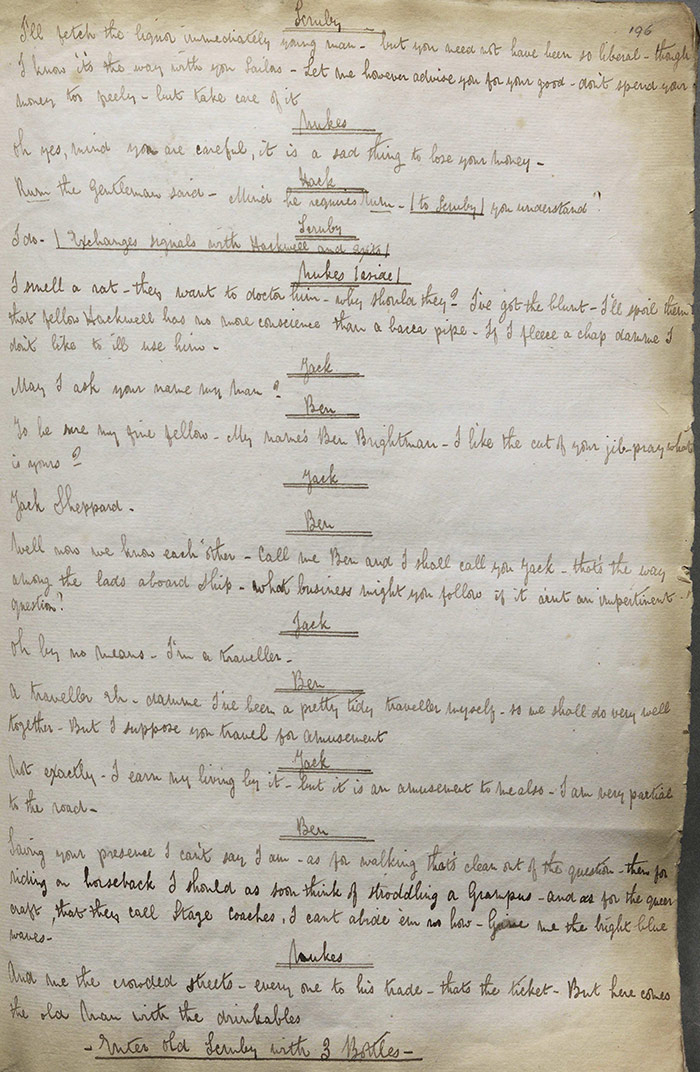 196
Scruby
I'll fetch the liquor immediately young man - but you need not have been so liberal - though
I know it's the way with you Sailors - Let me however advise you for your good - don't spend your
money too freely - but take care of it
Nukes
Oh yes, mind you are careful, it is a sad thing to lose your money -
Hack
Rum the Gentleman said - Mind he requires Rum - (to Scruby) you understand?
Scruby
I do - (Exchanges signals with Hackwell and exits)
Nukes (aside)
I smell a rat - they want to doctor him - why should they? I've got the blunt - I'll spoil them
that fellow Hackwell has no more conscience than a bacca pipe - If I fleece a chap damme I
don't like to ill use him -
Jack
May I ask your name my man?
Ben
To be sure my fine fellow - My name's Ben Brightman - I like the cut of your jib - pray what
is yours?
Jack
Jack Sheppard -
Ben
Well now we know each other - Call me Ben and I shall call you Jack - that's the way
among the lads aboard Ship - what business might you follow if it arnt an impertinent
question?
Jack
Oh by no means - I'm a traveller -
Ben
A traveller eh - damme I've been a pretty tidy traveller myself - so we shall do very well
together - But I suppose you travel for amusement
Jack
Not exactly - I earn my living by it - but it is an amusement to me also - I am very partial
to the road -
Ben
Saving your presence I can't say I am - as for walking that's clean out of the question - then for
riding on horseback I should as soon think of stroddling a Grampus - and as for the queer
craft, that they call Stage Coaches, I cant abide 'em no how - Gi me the bright blue
waves -
Nukes
And me the crowded streets - every one to his trade - thats the ticket - But here comes
the old Man with the drinkables
- Enter old Scruby with 3 Bottles -